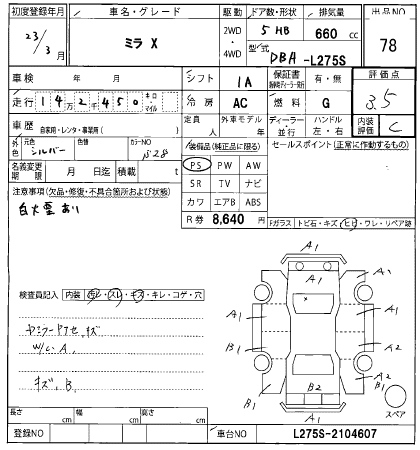 初度登録年月 車名・グレード 駆動 ドア数・形状 排気量 出品NO
23/3月 ミラ X 2WD・4WD 5 HB 660 cc 78
型式 DBA-L275S
車検 年 月 シフト IA 保証書 有・無 評価点
走行 142450 キロ・マイル 冷房 AC 燃料 G 3.5
車歴 自家用・レンタ・事業用( ) 定員 人 外車モデル 年 ディーラー・並行 ハンドル 左・右 内装評価 C
外色 元色 シルバー 色替 カラーNO 装備品(純正品に限る) セールスポイント(正常に作動するもの)
名義変更期限 月 日迄 積載 t PS PW AW
注意事項(欠品・修復・不具合箇所および状態) SR TV ナビ
カワ エアB ABS
R券 8,640円
Fガラス トビ石・キズ・ヒビ・ワレ・リペア跡
検査員記入 内装 汚レ・スレ・キズ・キレ・コゲ・穴
W/C A.
キズ. B.
A1
A1
A1
A1
A1
B1
A2
B1
B2
A2
A1
スペア
長さ cm 幅 cm 高さ cm
登録NO 車台NO L275S-2104607